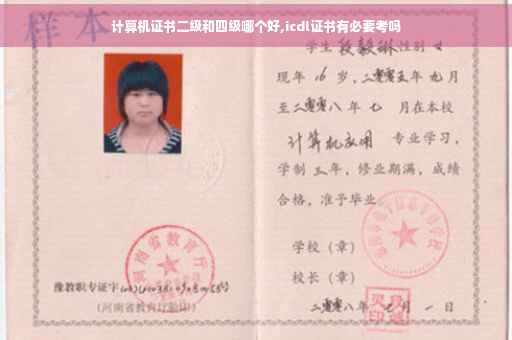 计算机证书二级和四级哪个好,icdl证书有必要考吗
样本
学生 段毅琳 性别 女
现年 16 岁，二零零五年 九 月
至二零零八 年 七 月在本校
计算机应用 专业学习，
学制 三 年，修业期满，成绩
合格，准予毕业
学校（章）
校长（章）
二零零八年 月 一 日
河南省教育厅
豫教职专证字
（河南省教育厅验印）